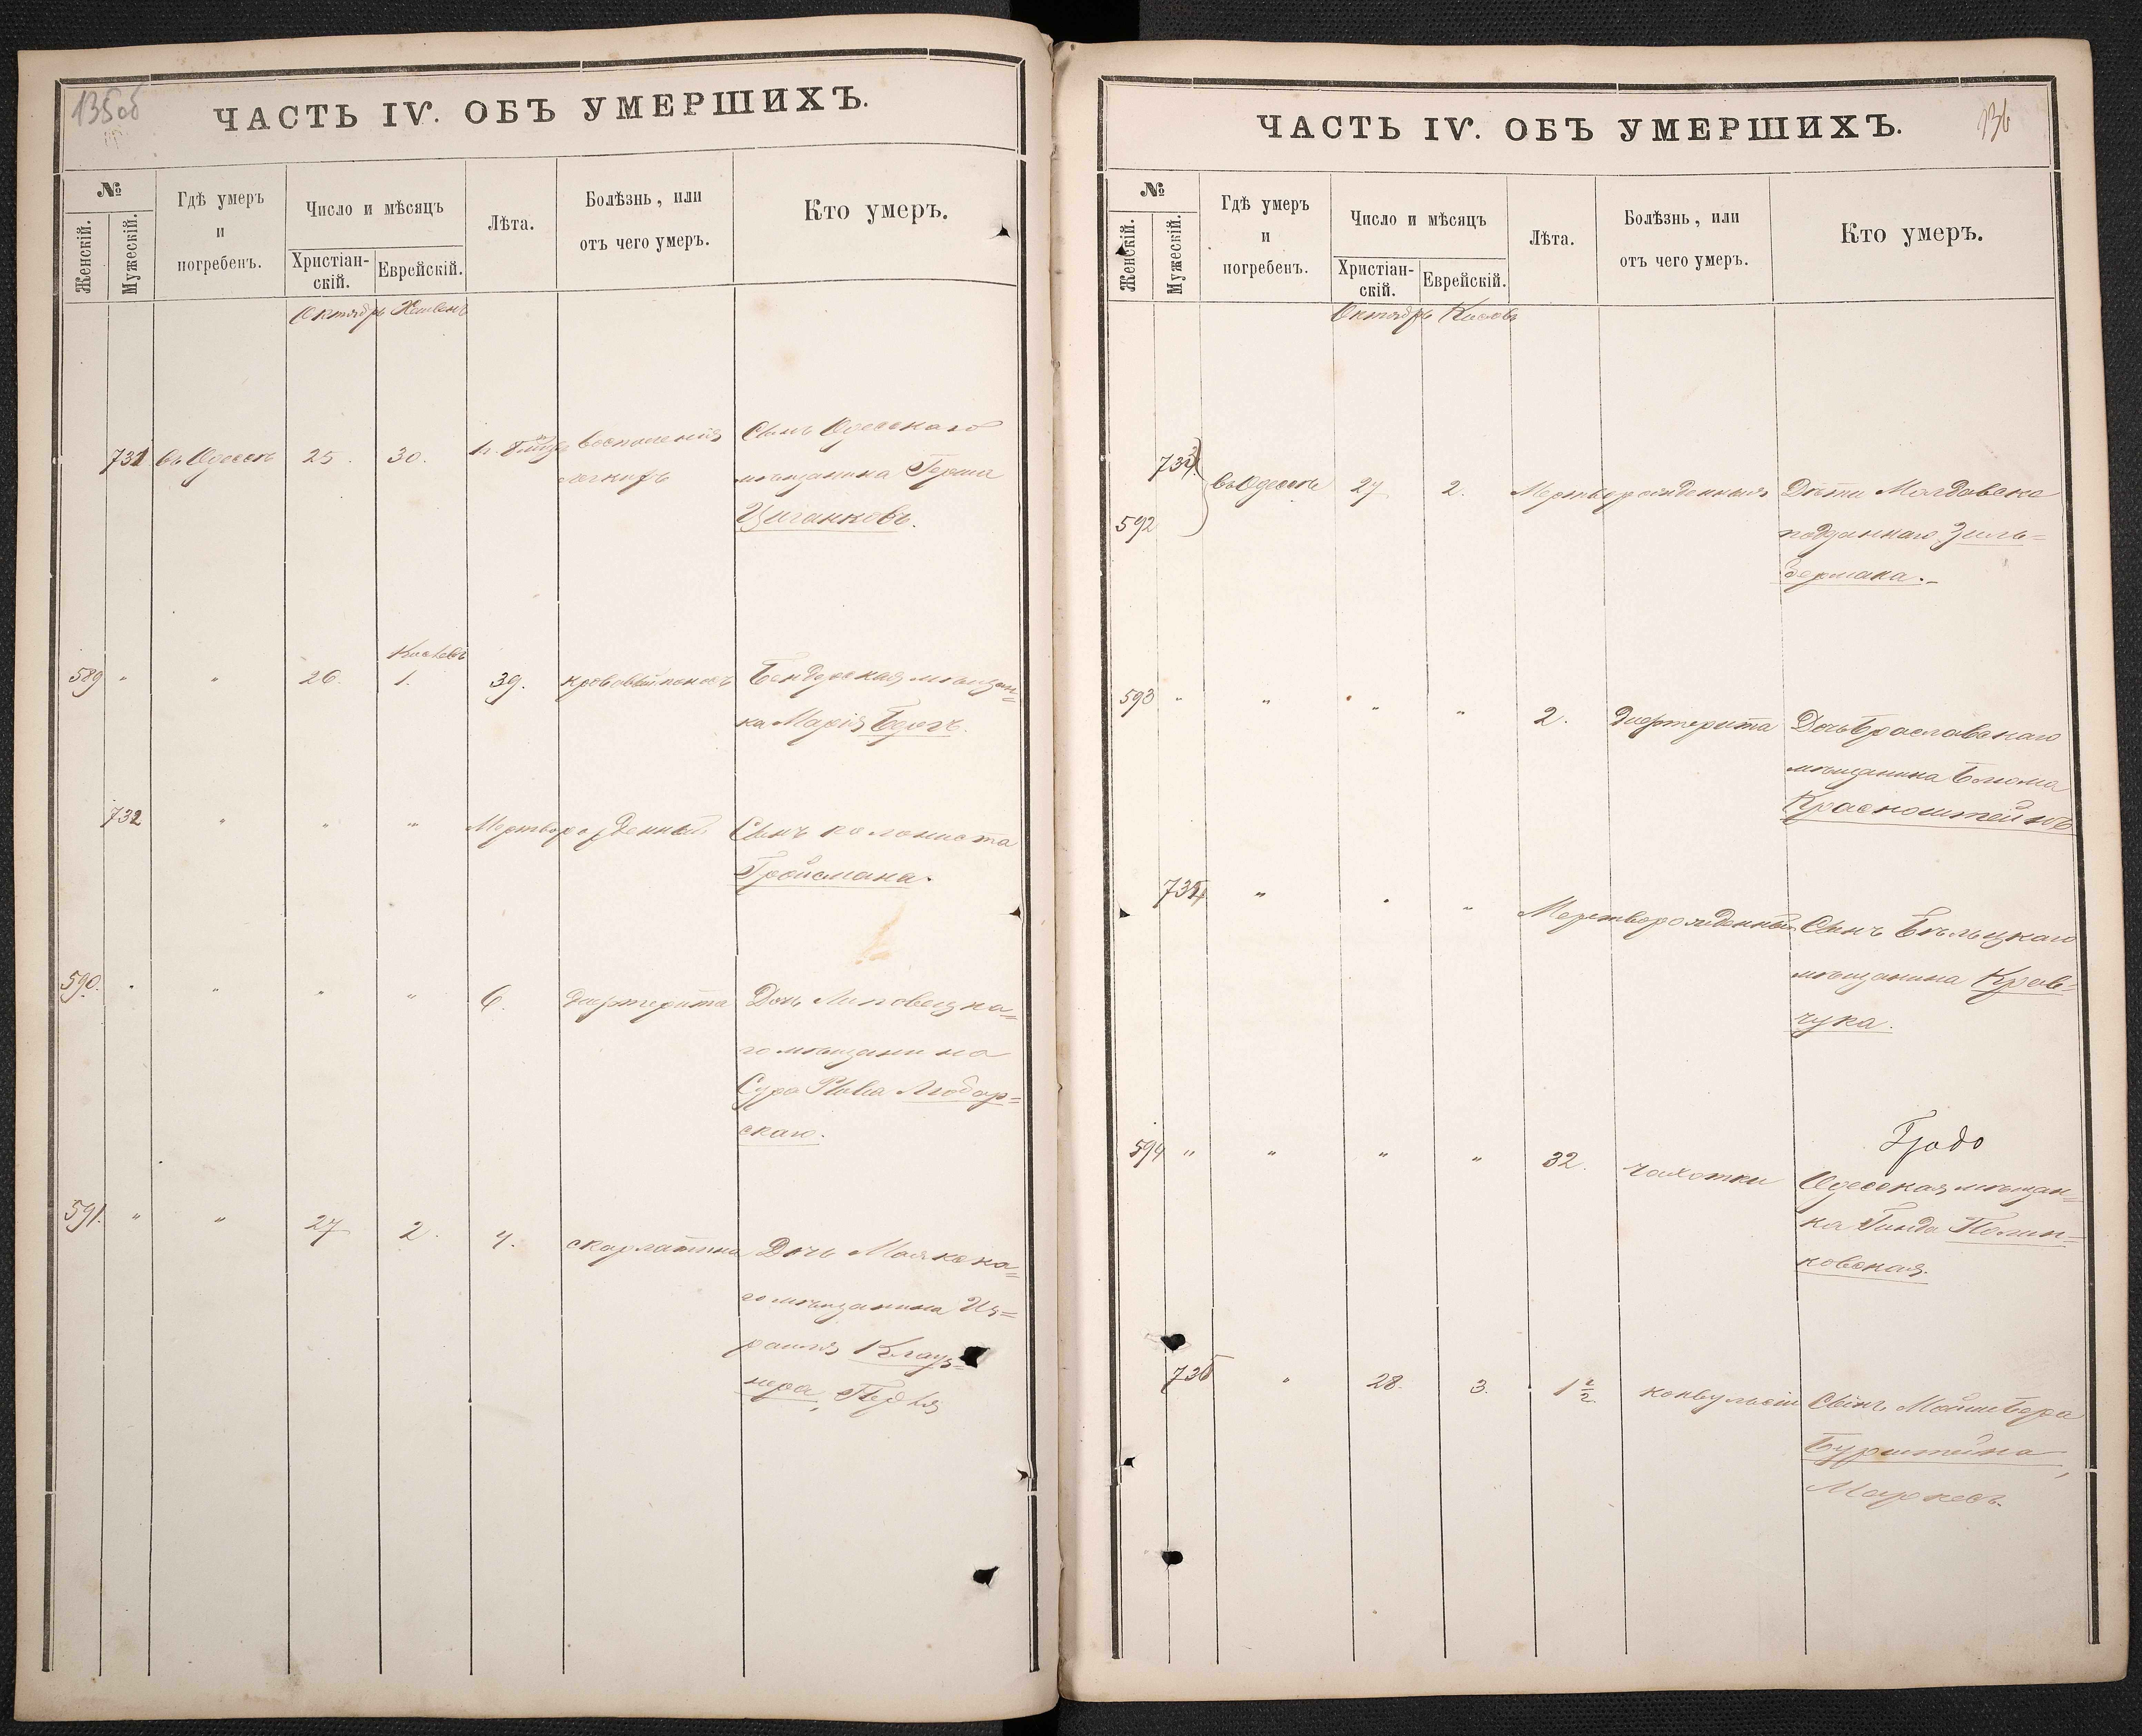 135об
ЧАСТЬ IV. ОБЪ УМЕРШИХЪ.
№
Женскій.
Мужескій.
Гдѣ умеръ
и
погребенъ.
Число и мѣсяцъ
Христіан-
скій.
Еврейскій.
Лѣта.
Болѣзнь, или
отъ чего умеръ.
Кто умеръ.
Октябрь
731 въ Одессѣ 25. 30. воспаленія Сынъ Одесскаго
легкихъ мѣщанина Герша
Циганковъ.
Кислевъ
589 " " 26. 1. 39. кровавый поносъ Бендерская мѣщан=
ка Марія
732 " " " Мертворожденный Сынъ колониста
Гройсмана.
590. " " " " 6. дифтерита Дочь Липовецка=
го мѣщанина
Сура Рива Любар=
скаго.
591. " " 27 2. 4. скарлатина Дочь Маякска=
го мѣщанина Из=
раиля Клауз=
нера,
136
ЧАСТЬ IV. ОБЪ УМЕРШИХЪ.
№
Женскій.
Мужескій.
Гдѣ умеръ
и
погребенъ.
Число и мѣсяцъ
Христіан-
скій.
Еврейскій.
Лѣта.
Болѣзнь, или
отъ чего умеръ.
Кто умеръ.
Октябрь Кислевъ
733
592 въ Одессѣ 27 2. Мертворожденныя Дѣти Молдавско
подданнаго Зиль=
бермана.
593 " " " " 2. дифтерита Дочь Браславскаго
мѣщанина Блюма
Краснонштейнъ
734 " " " Мертворожденный Сынъ Бѣльцкаго
мѣщанина Крав=
чука.
594 " " " " 32. чахотки Одесская мѣщан=
ка Гинда Полин=
ковская.
735 " 28. 3. 1½ конвульсіи Сынъ Мошибера
Бурштейна,